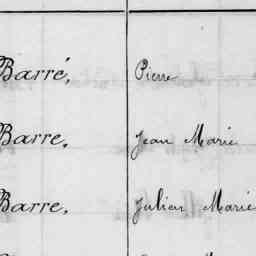 Barré, Pierre
Barre, Jean Marie
Barre, Julien Marie